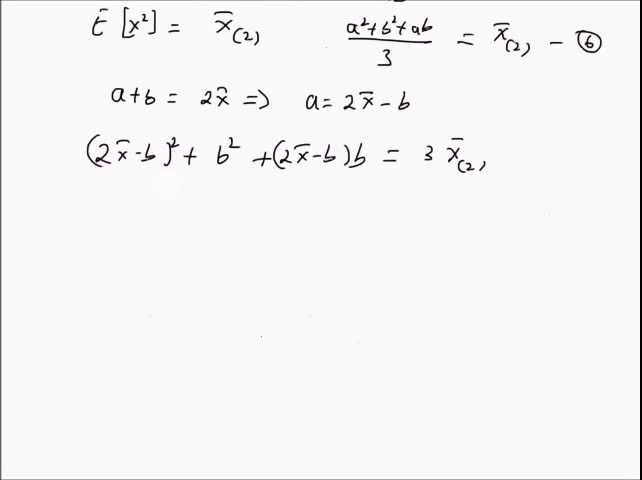 E [x²] = x̄₍₂₎ (a²+b²+ab)/3 = x̄₍₂₎ - ⑥
a+b = 2x̄ => a = 2x̄ - b
(2x̄-b)² + b² + (2x̄-b)b = 3 x̄₍₂₎